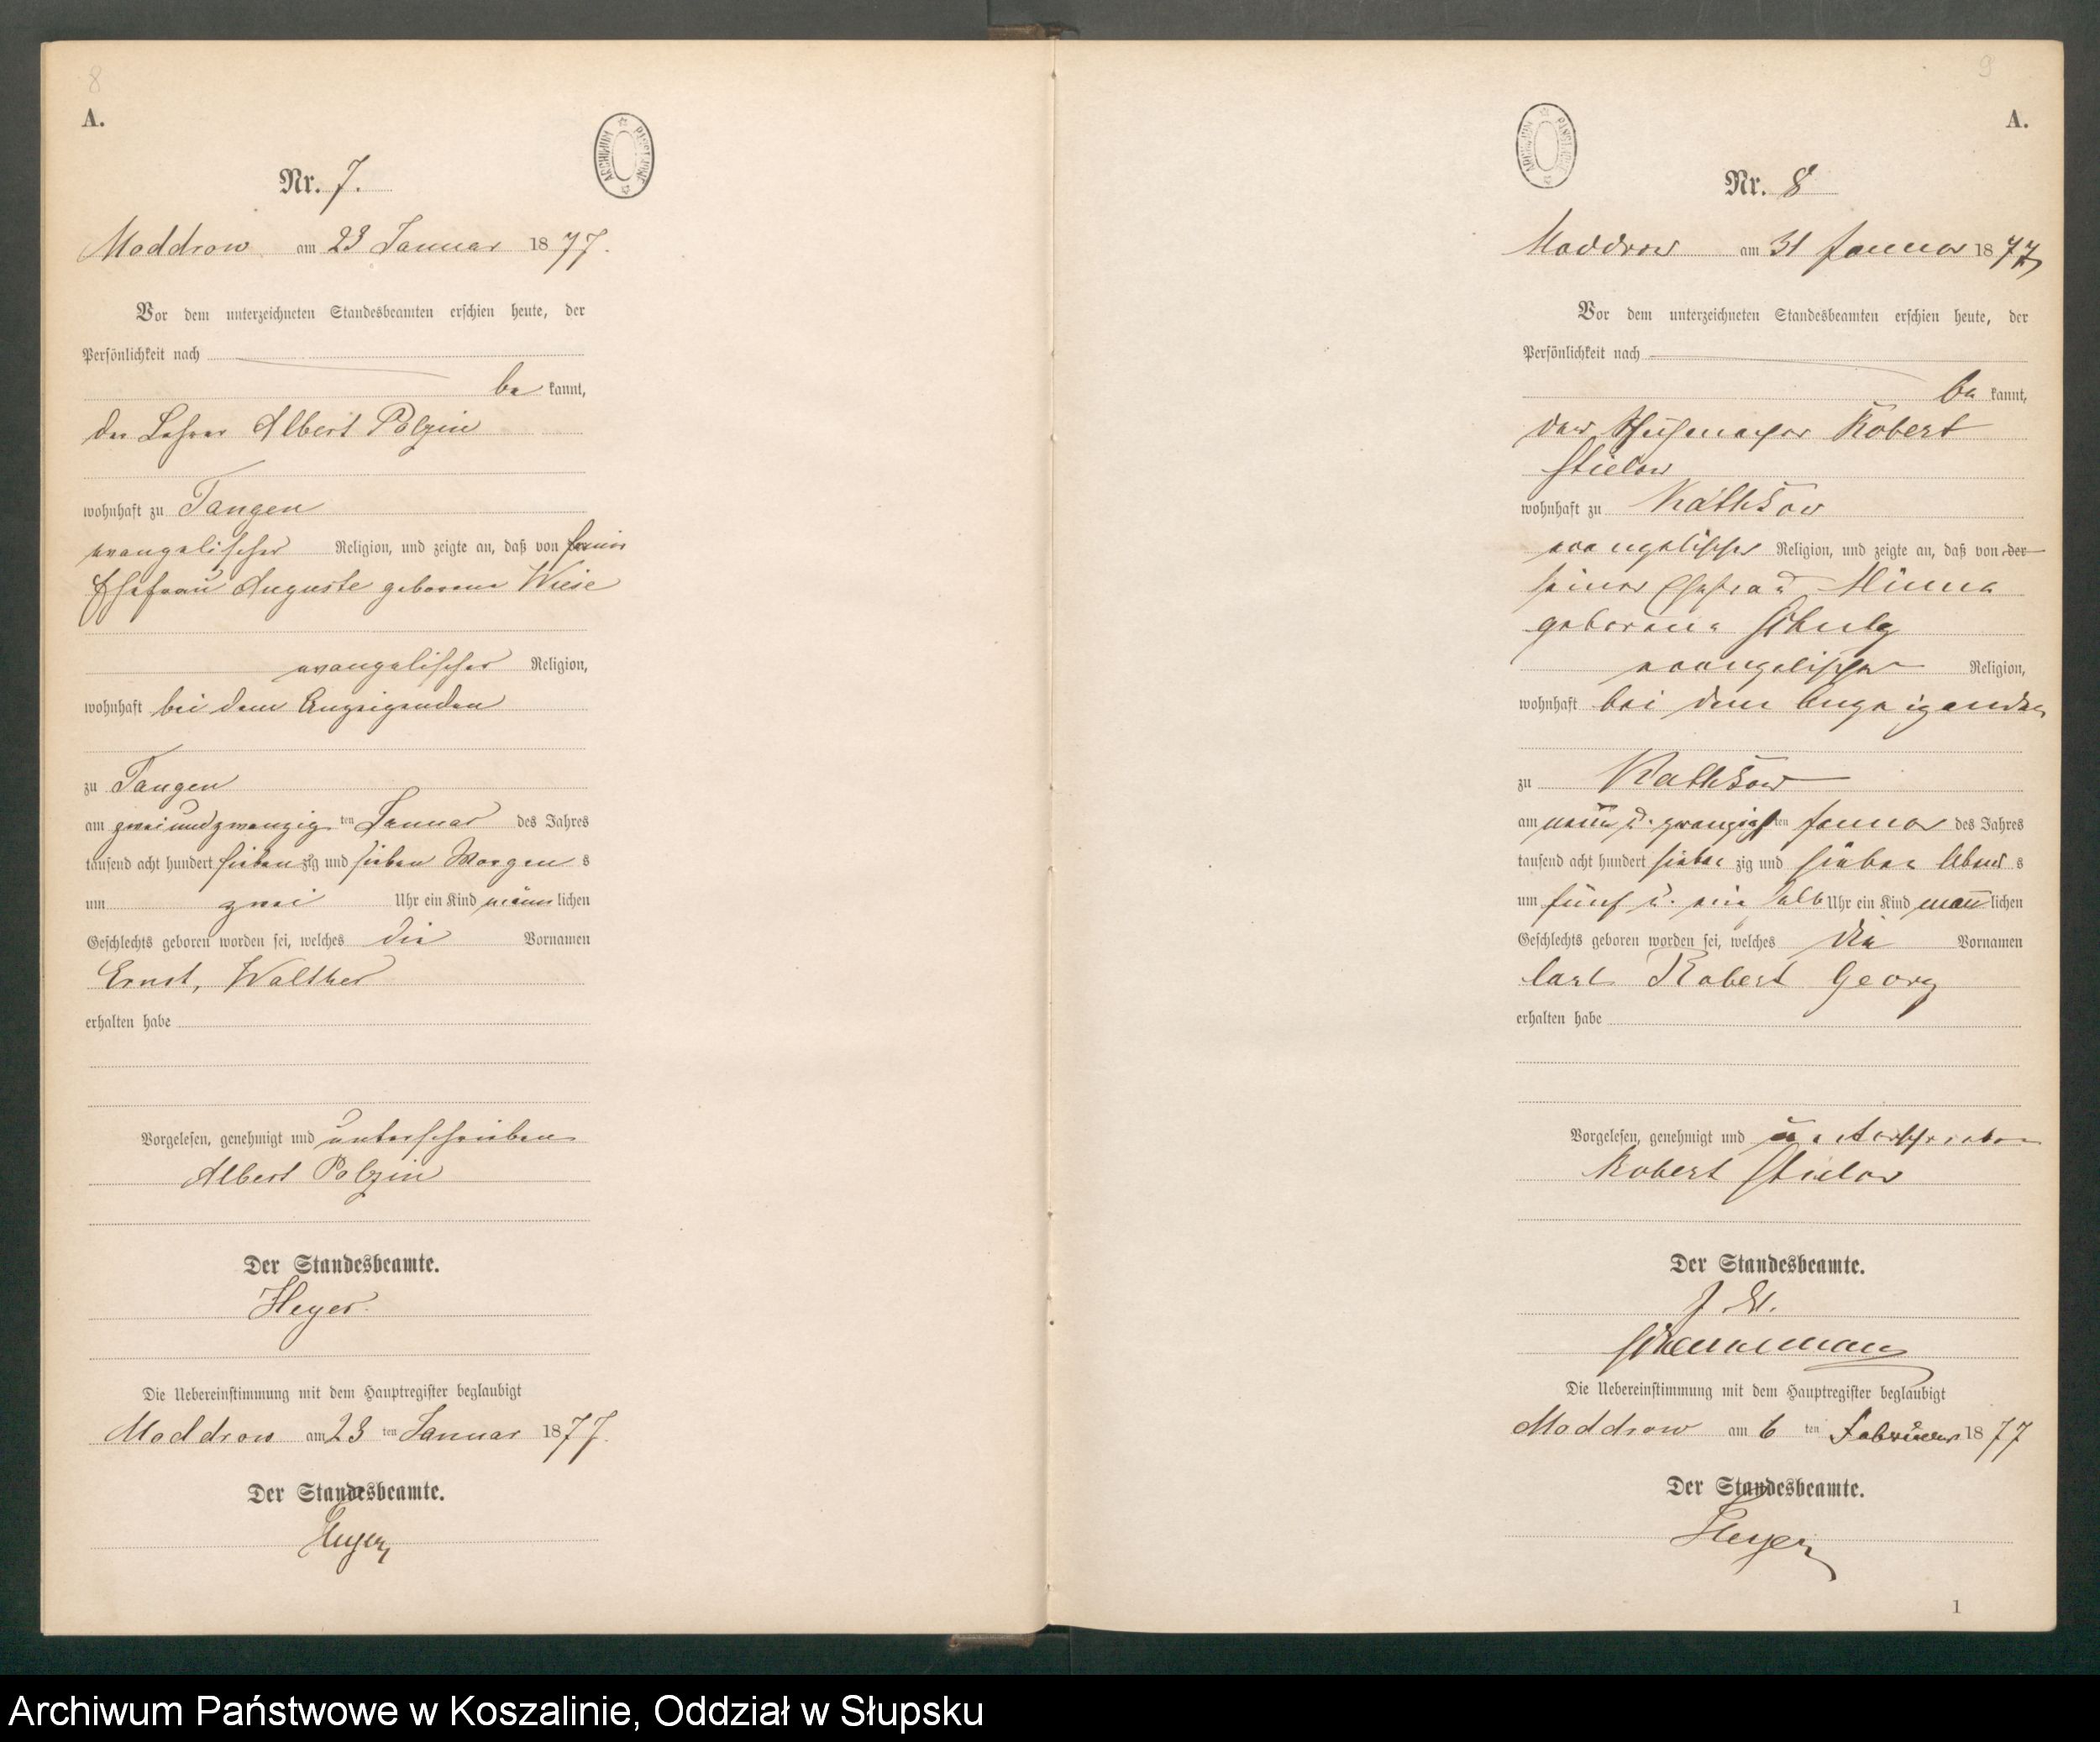 8
A.
ARCHIWUM PAŃSTWOWE
Nr. 7.
Moddrow am 23 Januar 1877.
Vor dem unterzeichneten Standesbeamten erschien heute, der
Persönlichkeit nach
be kannt,
der Lehrer Albert Polzin
wohnhaft zu Tangen
evangelischer Religion, und zeigte an, daß von seiner
Ehefrau Auguste geborene Wiese
evangelischer Religion,
wohnhaft bei dem Anzeigenden
zu Tangen
am zweiundzwanzig ten Januar des Jahres
tausend acht hundert sieben zig und sieben Morgen s
um zwei Uhr ein Kind männ lichen
Geschlechts geboren worden sei, welches die Vornamen
Ernst, Walther
erhalten habe
Vorgelesen, genehmigt und unterschrieben
Albert Polzin
Der Standesbeamte.
Heyer.
Die Uebereinstimmung mit dem Hauptregister beglaubigt
Moddrow am 23 ten Januar 1877.
Der Standesbeamte.
Heyer
9
A.
ARCHIWUM PAŃSTWOWE
Nr. 8
Moddrow am 31 Januar 1877
Vor dem unterzeichneten Standesbeamten erschien heute, der
Persönlichkeit nach
be kannt,
der Robert
Stielow
wohnhaft zu Kathkow
evangelischer Religion, und zeigte an, daß von der
seiner Ehefrau Minna
geborene Schulz
evangelischer Religion,
wohnhaft bei dem Anzeigenden
zu Kathkow
am neun u. zwanzigsten Januar des Jahres
tausend acht hundert sieben zig und sieben Abend s
um fünf u. ein halb Uhr ein Kind männ lichen
Geschlechts geboren worden sei, welches die Vornamen
Carl Robert Georg
erhalten habe
Vorgelesen, genehmigt und unterschrieben
Robert Stielow
Der Standesbeamte.
Die Uebereinstimmung mit dem Hauptregister beglaubigt
Moddrow am 6 ten Februar 1877
Der Standesbeamte.
Heyer
1
Archiwum Państwowe w Koszalinie, Oddział w Słupsku